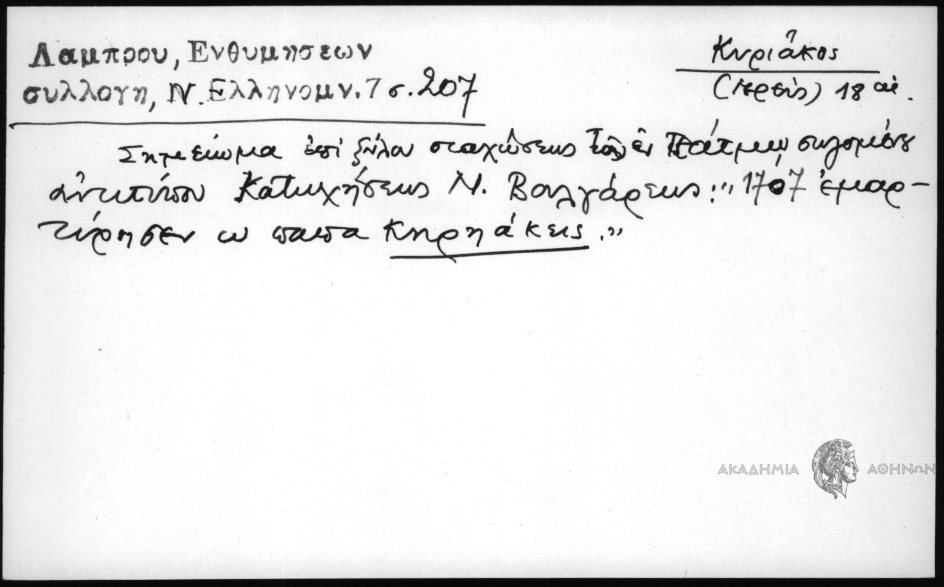 Λαμπρου, Ενθυμησεων
συλλογη, Ν. Ελληνομν. 7 σ. 207
Κυριᾶκος
(ἱερεὺς) 18 αἰ.
Σημείωμα ἐπὶ ξύλου σταχώσεως τοῦ ἐν Πάτμῳ σῳζομένου
ἀντιτύπου Κατηχήσεως Ν. Βουλγάρεως: "1707 ἐμαρ-
τύρησεν ω παπα Κηρηάκεις."
ΑΚΑΔΗΜΙΑ ΑΘΗΝΩΝ